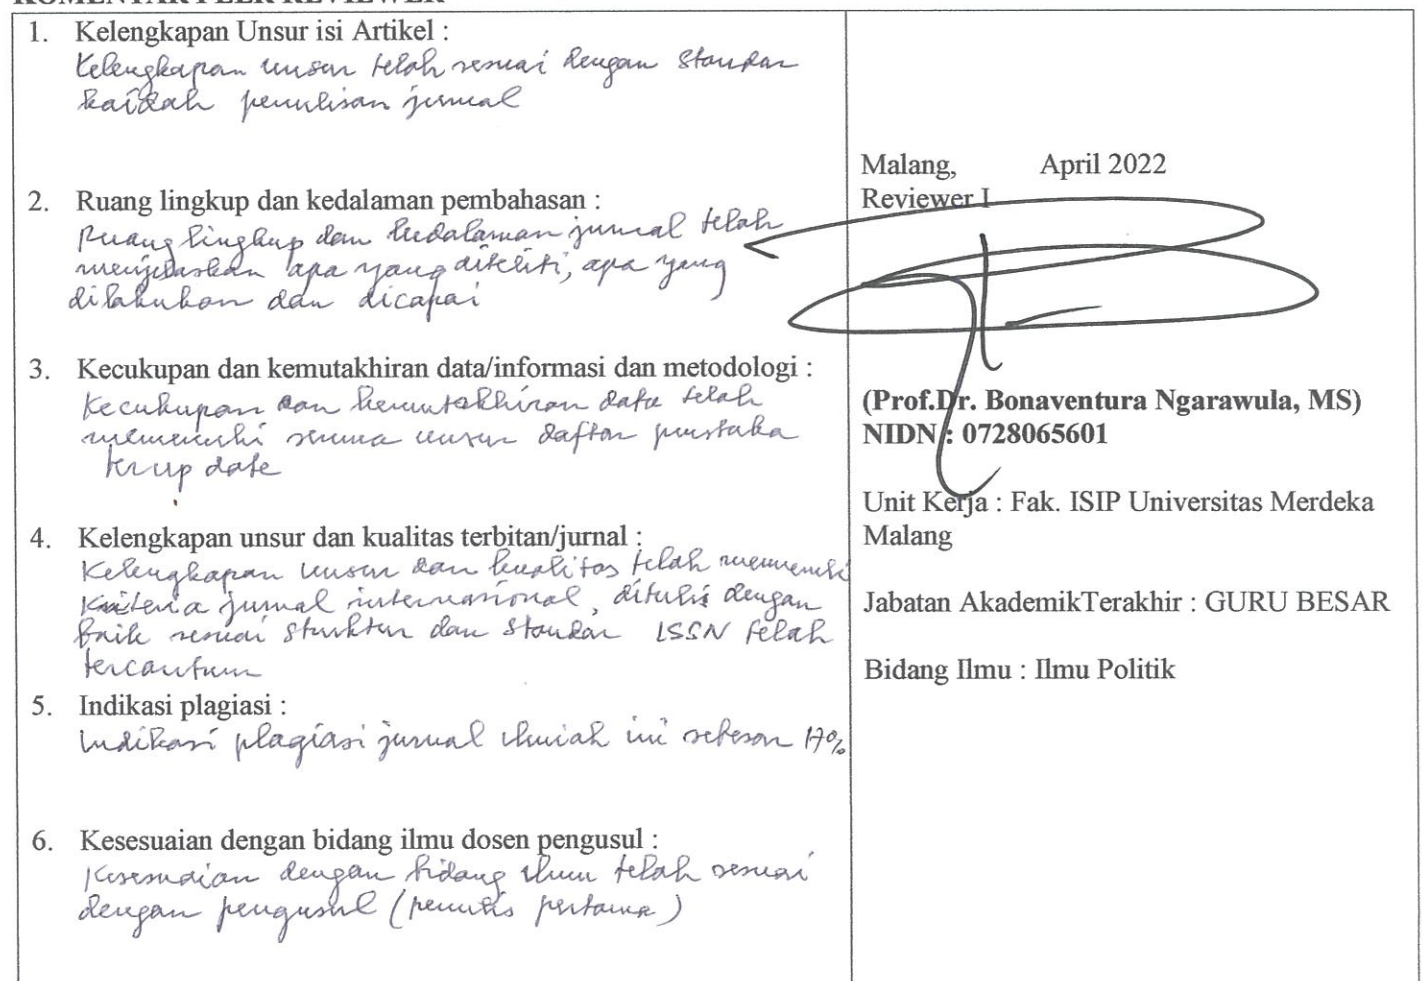 KOMENTAR PEER REVIEWER
1. Kelengkapan Unsur isi Artikel :
Kelengkapan unsur telah sesuai dengan standar
kaidah penulisan jurnal
2. Ruang lingkup dan kedalaman pembahasan :
Ruang lingkup dan kedalaman jurnal telah
menjelaskan apa yang diteliti, apa yang
dilakukan dan dicapai
3. Kecukupan dan kemutakhiran data/informasi dan metodologi :
Kecukupan dan kemutakhiran data telah
memenuhi semua unsur daftar pustaka
ter up date
4. Kelengkapan unsur dan kualitas terbitan/jurnal :
Kelengkapan unsur dan kualitas telah memenuhi
Kriteria jurnal internasional, ditulis dengan
baik sesuai struktur dan standar ISSN telah
tercantum
5. Indikasi plagiasi :
Indikasi plagiasi jurnal ilmiah ini sebesar 17%
6. Kesesuaian dengan bidang ilmu dosen pengusul :
Kesesuaian dengan bidang ilmu telah sesuai
dengan pengusul (penulis pertama)
Malang, April 2022
Reviewer I
(Prof.Dr. Bonaventura Ngarawula, MS)
NIDN : 0728065601
Unit Kerja : Fak. ISIP Universitas Merdeka
Malang
Jabatan AkademikTerakhir : GURU BESAR
Bidang Ilmu : Ilmu Politik